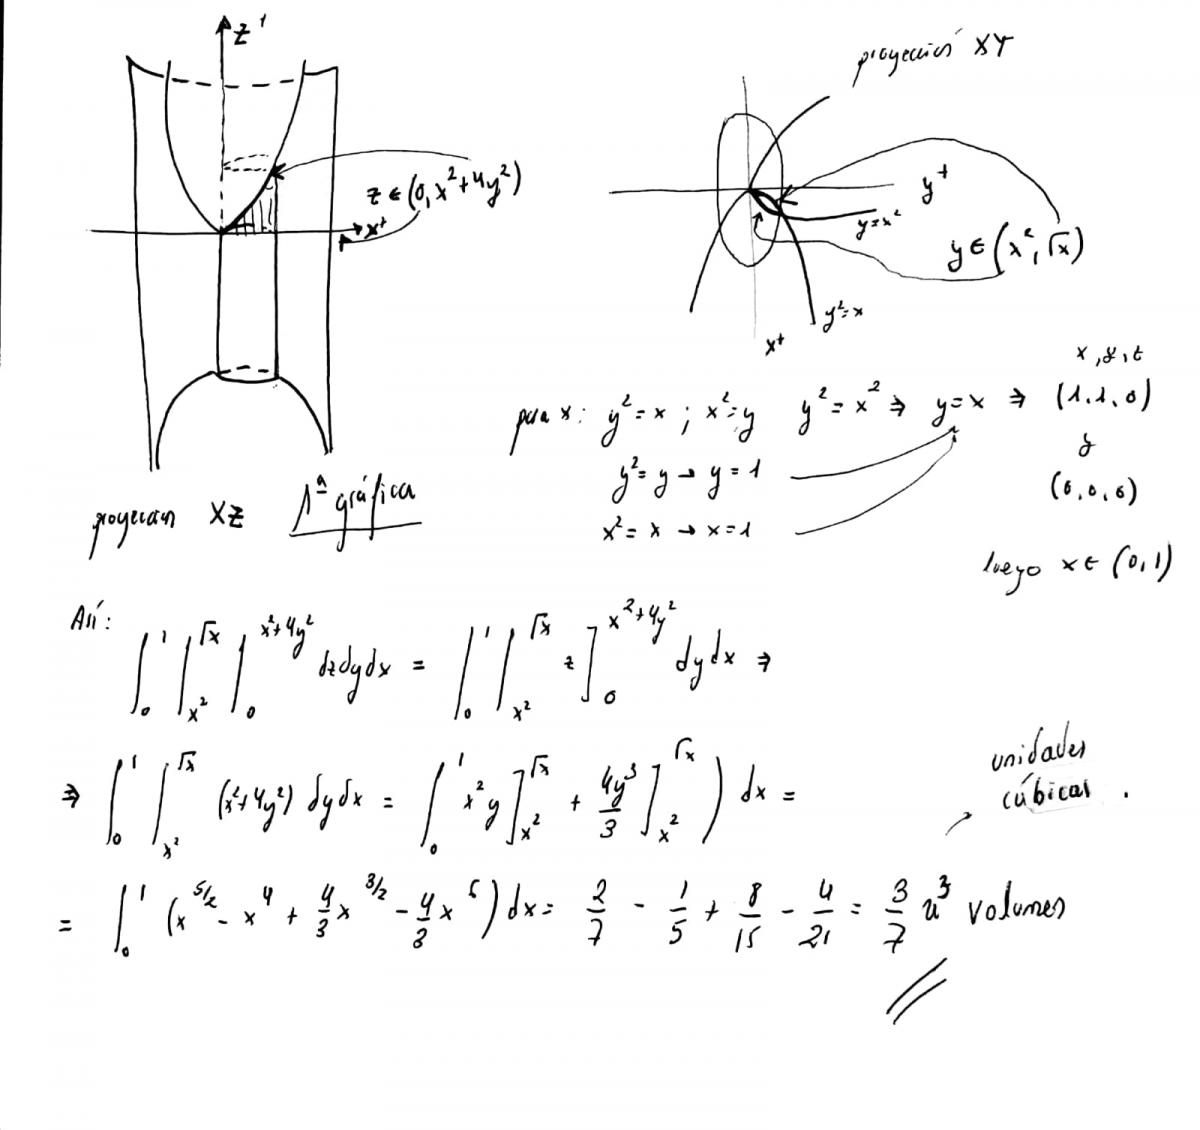 z⁺
z ∈ (0, x²+4y²)
x⁺
proyección XZ 1ª gráfica
proyección XY
y⁺
y=x²
y ∈ (x², √x)
y²=x
x⁺
para x: y²=x ; x²=y y²=x² ⇒ y=x ⇒
x, y, z
(1,1,0)
y
(0,0,0)
y²=y → y=1
x²=x → x=1
luego x ∈ (0,1)
Así:
∫₀¹ ∫_{x²}^{√x} ∫₀^{x²+4y²} dzdydx = ∫₀¹ ∫_{x²}^{√x} z]₀^{x²+4y²} dydx ⇒
⇒ ∫₀¹ ∫_{x²}^{√x} (x²+4y²) dydx = ∫₀¹ x²y]_{x²}^{√x} + 4y³/3]_{x²}^{√x} ) dx =
unidades
cúbicas.
= ∫₀¹ (x^{5/2} - x⁴ + 4/3 x^{3/2} - 4/3 x⁶) dx = 2/7 - 1/5 + 8/15 - 4/21 = 3/7 u³ volumes